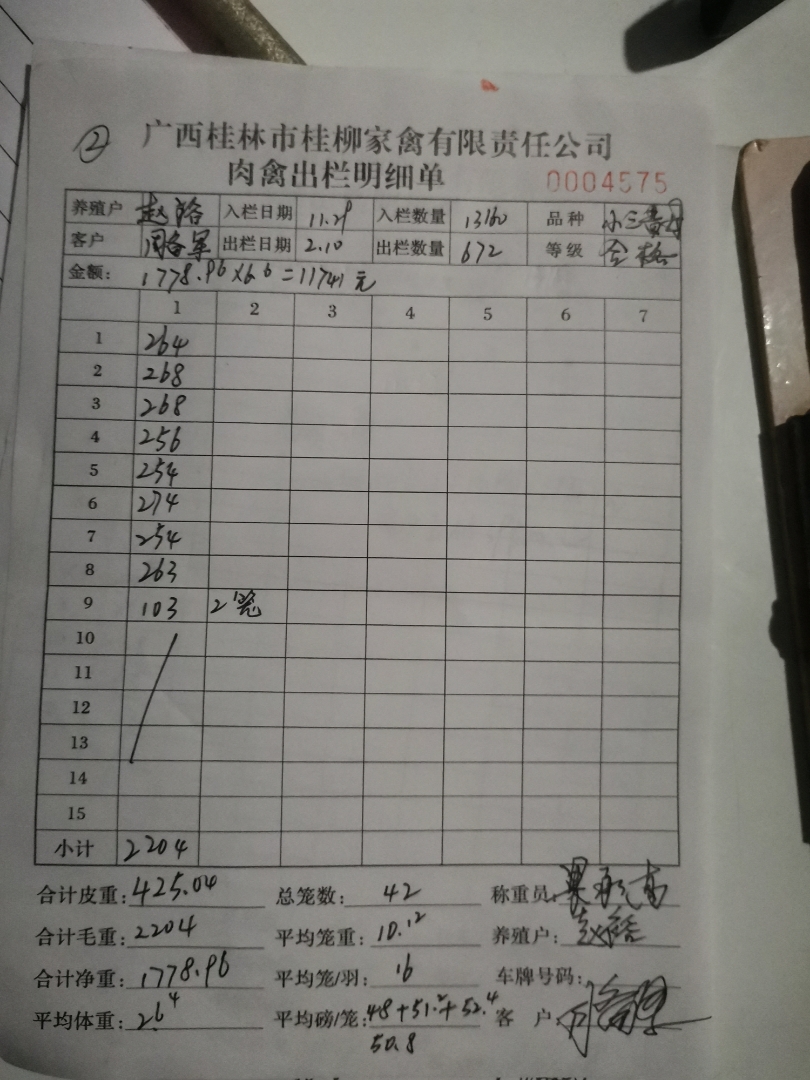 ② 广西桂林市桂柳家禽有限责任公司
肉禽出栏明细单 0004575
养殖户 赵 入栏日期 11.29 入栏数量 13160 品种 小三黄
客户 出栏日期 2.10 出栏数量 672 等级 合格
金额: 1778.96×6.6=11741元
1 2 3 4 5 6 7
1 264
2 268
3 268
4 256
5 254
6 274
7 254
8 263
9 103 2笼
10
11
12
13
14
15
小计 2204
合计皮重: 425.04 总笼数: 42 称重员:
合计毛重: 2204 平均笼重: 10.12 养殖户: 赵
合计净重: 1778.96 平均笼/羽: 16 车牌号码:
平均体重: 2.64 平均磅/笼: 48+51.2+52.4 客 户
50.8